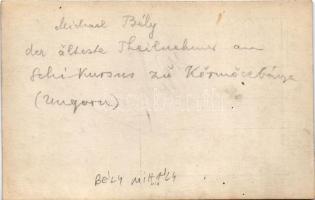 Michael Bély
der älteste Theilnehmer am
Schi-Kursus zu Körmöczbánya
(Ungarn)
BÉLY MIHÁLY